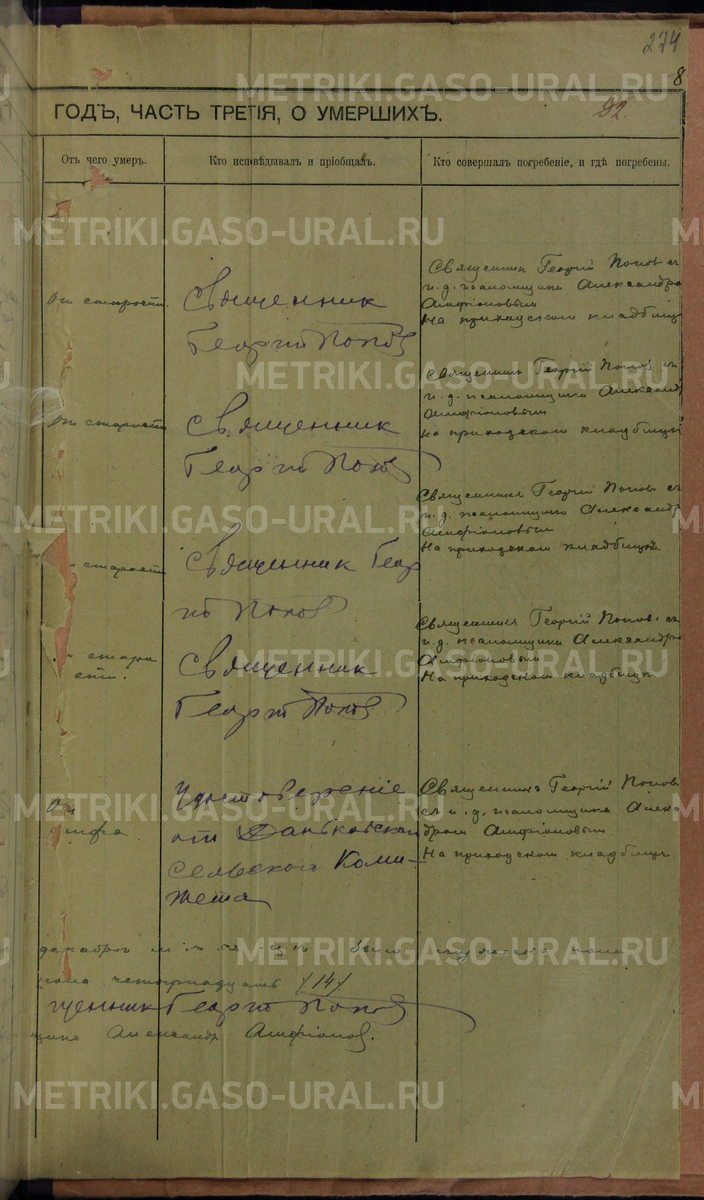 274
8
ГОДЪ, ЧАСТЬ ТРЕТІЯ, О УМЕРШИХЪ.
92.
Отъ чего умеръ.
Кто исповѣдывалъ и пріобщалъ.
Кто совершалъ погребеніе, и гдѣ погребены.
От старости.
Священник
Георгій Попов
Священникъ Георгій Попов съ
и. д. псаломщика Александро
Амфіоновым
На приходском кладбищѣ
От старости
Священник
Георгій Попов
Священникъ Георгій Попов съ
и. д. псаломщика Александ
Амфіоновым
На приходском кладбищѣ
старости
Священник Геор
гій Попов
Священникъ Георгій Попов съ
и. д. псаломщика Александр
Амфіоновым
На приходском кладбищѣ
старо
сти.
Священник
Георгій Попов
Священникъ Георгій Попов съ
и. д. псаломщика Александро
Амфіоновым
На приходском кладбищѣ
От
тифа.
Удостовереніе
от
сельского Коми-
тета
Священникъ Георгій Попов
съ и. д. псаломщика Алекса-
дром Амфіоновым
На приходском кладбищѣ
декабрѣ было
пола четырнадцать /14/
щенник Георгій Попов
Александр Амфіонов.
METRIKI.GASO-URAL.RU